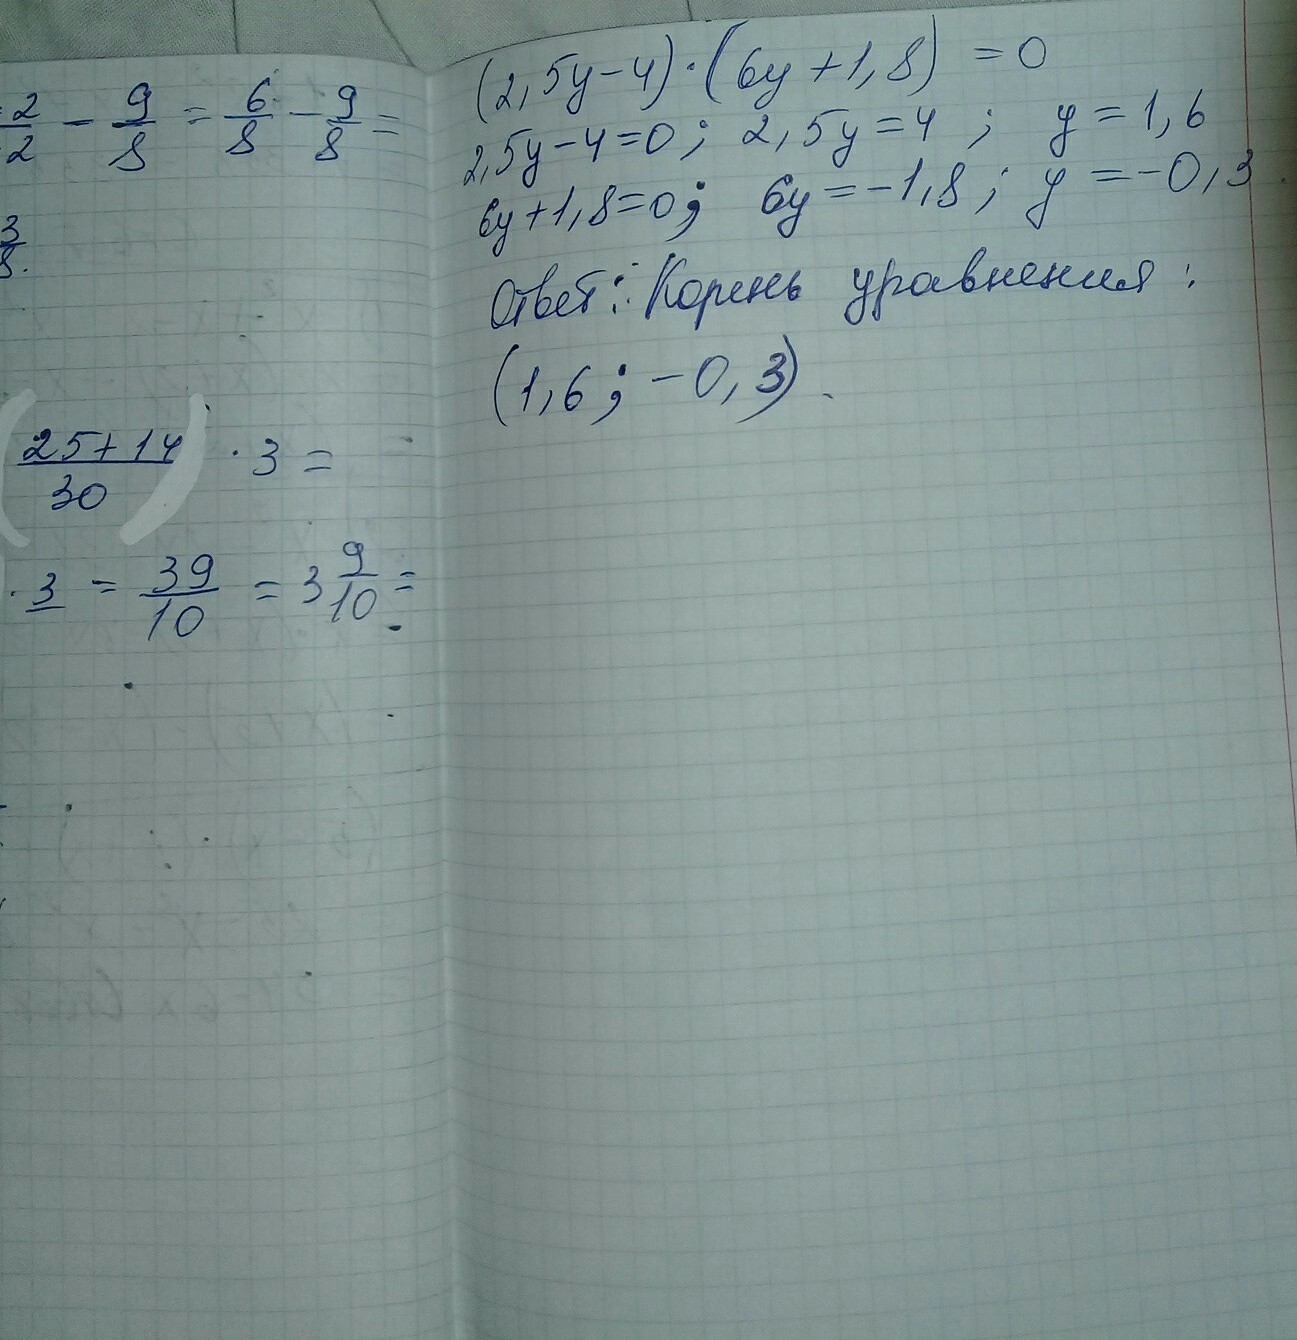 2/2 - 9/8 = 6/8 - 9/8 =
3/8.
(25+14)/30 · 3 =
· 3 = 39/10 = 3 9/10 =
(2,5y-4)·(6y+1,8) = 0
2,5y-4=0; 2,5y=4 ; y=1,6
6y+1,8=0; 6y=-1,8; y=-0,3.
Ответ: Корень уравнения:
(1,6; -0,3).